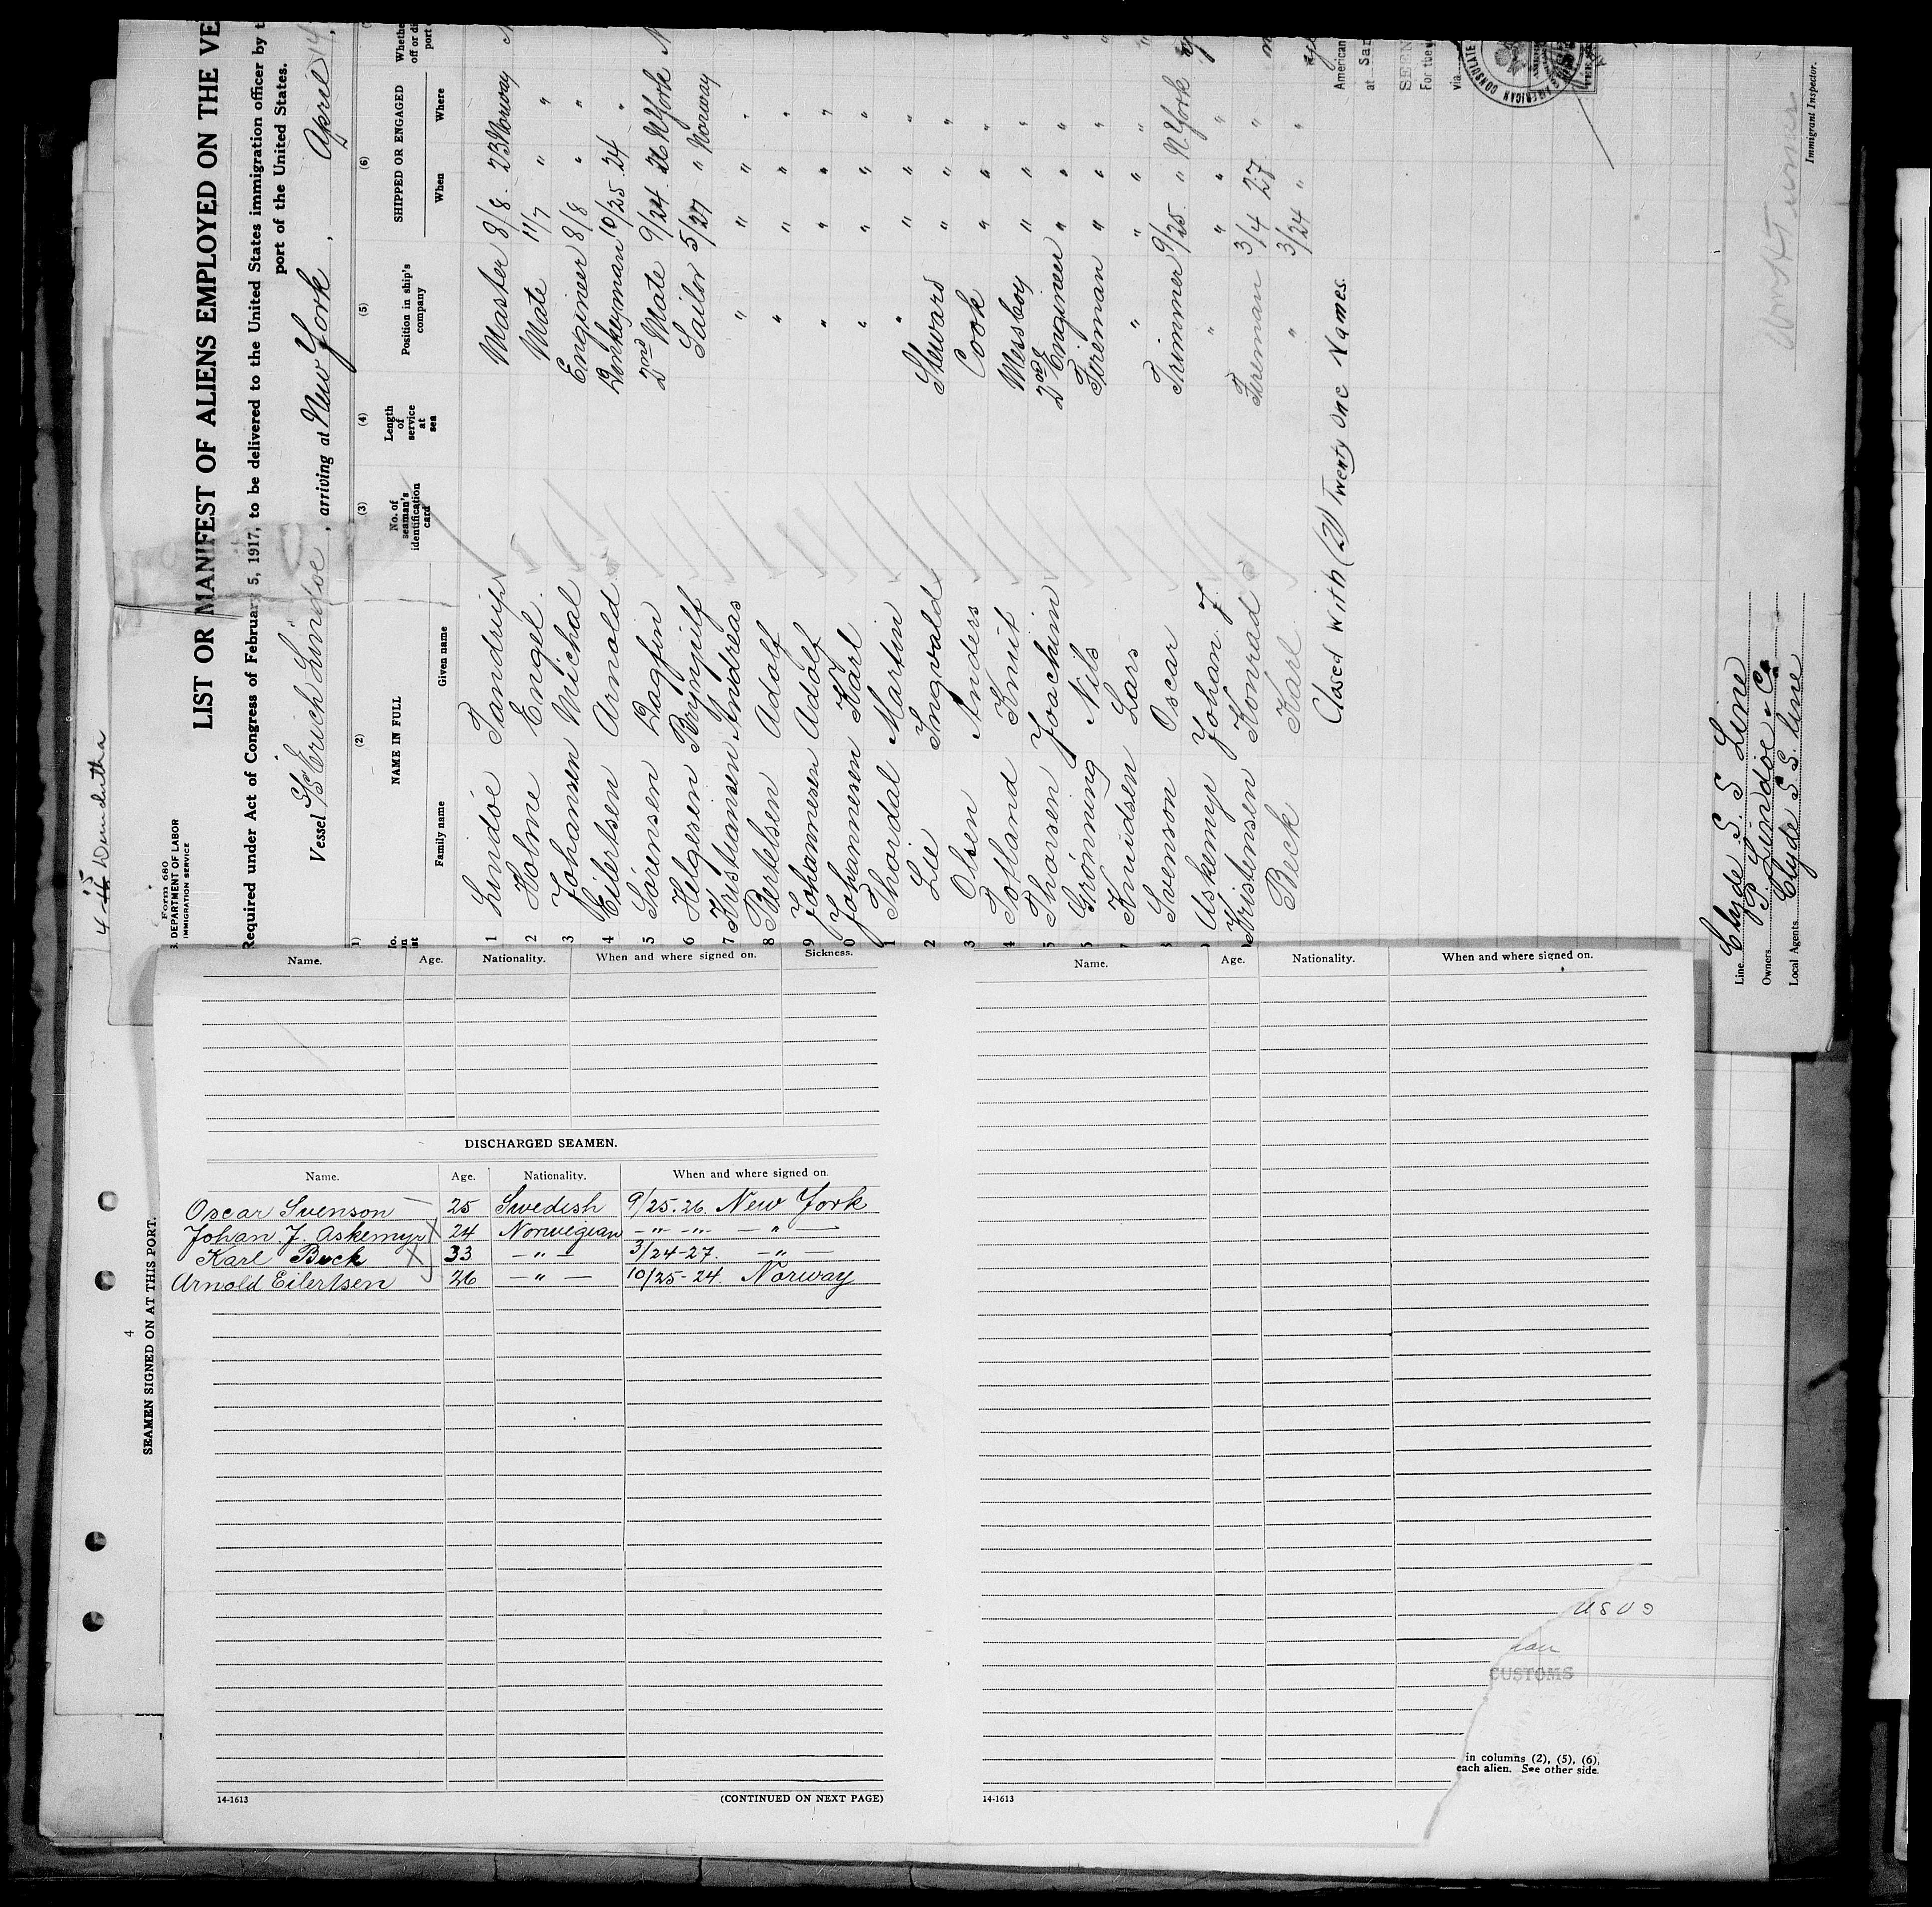 4-15 Dundutha
Form 680
DEPARTMENT OF LABOR
IMMIGRATION SERVICE
LIST OR MANIFEST OF ALIENS EMPLOYED ON THE VE
Required under Act of Congress of February 5, 1917, to be delivered to the United States immigration officer by t
port of the United States.
Vessel S/S Erich Lindöe, arriving at New York, April 14,
(2) (3) (4) (5) (6)
NAME IN FULL No. of seaman's identification card Length of service at sea Position in ship's company SHIPPED OR ENGAGED
Family name Given name When Where
1 Lindöe Tandrup Master 8/8. 23 Norway
2 Holme Engel. Mate 11/7 " "
3 Johansen Michal Engineer 8/8 " "
4 Eilertsen Arnold Donkeyman 10/25. 24 "
5 Sörensen Dagfin 2nd Mate 9/24. 26 N York
6 Helgesen Brynjulf Sailor 5/27 " Norway
7 Kristiansen Andreas " " " "
8 Bertelsen Adolf " " " "
9 Johannesen Adolf " " " "
0 Johannesen Karl " " " "
1 Thordal Martin " " " "
2 Lie Ingvald Steward " " "
3 Olsen Anders Cook " " "
4 Totland Knut Messboy " " "
5 Thorsen Joachim 2nd Engineer " " "
6 Grønning Nils Fireman " " "
7 Knudsen Lars " " " "
8 Svenson Oscar Trimmer 9/25. " N. York
Askemyr Johan J. " " " "
Kristensen Konrad Fireman 3/4 27 "
Beck Karl " 3/24 " "
Closed with (21) Twenty one Names.
American
at San
SEEN
For the
via
AMERICAN CONSULATE
Line Clyde S. S. Line
Owners P. Lindöe & Co.
Local Agents Clyde S S line
Immigrant Inspector.
4
SEAMEN SIGNED ON AT THIS PORT.
Name. Age. Nationality. When and where signed on. Sickness.
DISCHARGED SEAMEN.
Name. Age. Nationality. When and where signed on.
Oscar Svenson 25 Swedish 9/25.26. New York
Johan. J. Askemyr 24 Norwegian -"- -"- -"-
Karl Beck 33 -"- 3/24-27. -"-
Arnold Eilertsen 26 -"- 10/25-24. Norway
14-1613 (CONTINUED ON NEXT PAGE)
Name. Age. Nationality. When and where signed on.
CUSTOMS
in columns (2), (5), (6),
each alien. See other side.
14-1613